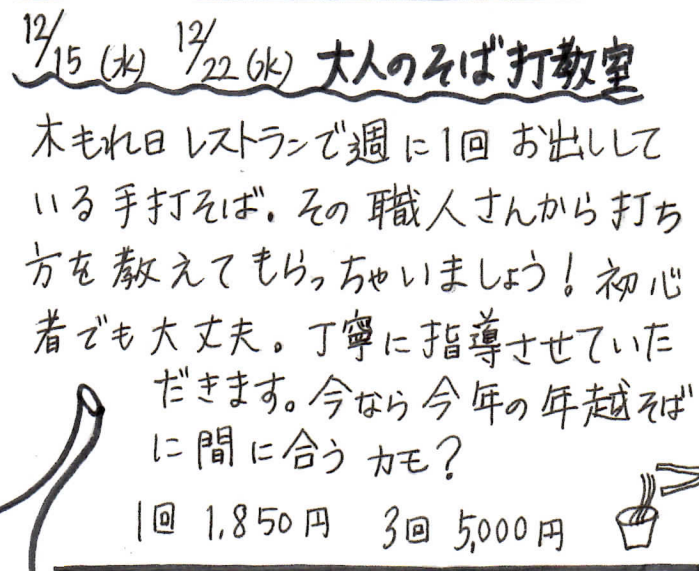 12/15(水) 12/22(水) 大人のそば打教室
木もれ日レストランで週に1回お出しして
いる手打そば。その職人さんから打ち
方を教えてもらっちゃいましょう!初心
者でも大丈夫。丁寧に指導させていた
だきます。今なら今年の年越そば
に間に合うカモ?
1回 1,850円 3回 5,000円